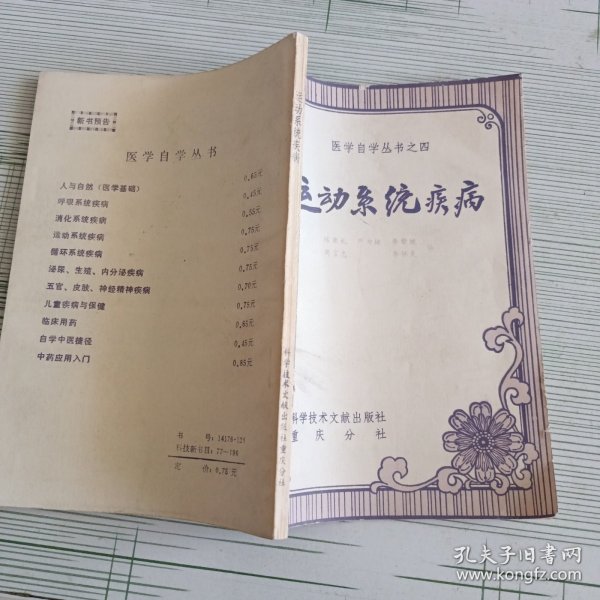 新书预告
医学自学丛书
人与自然（医学基础） 0.65元
呼吸系统疾病 0.45元
消化系统疾病 0.55元
运动系统疾病 0.75元
循环系统疾病 0.75元
泌尿、生殖、内分泌疾病 0.75元
五官、皮肤、神经精神疾病 0.70元
儿童疾病与保健 0.75元
临床用药 0.65元
自学中医捷径 0.45元
中药应用入门 0.85元
书 号：14176·121
科技新书目：77—196
定 价：0.75元
运动系统疾病
科学技术文献出版社重庆分社
医学自学丛书之四
运动系统疾病
科学技术文献出版社
重庆分社
孔夫子旧书网
www.kongfz.com